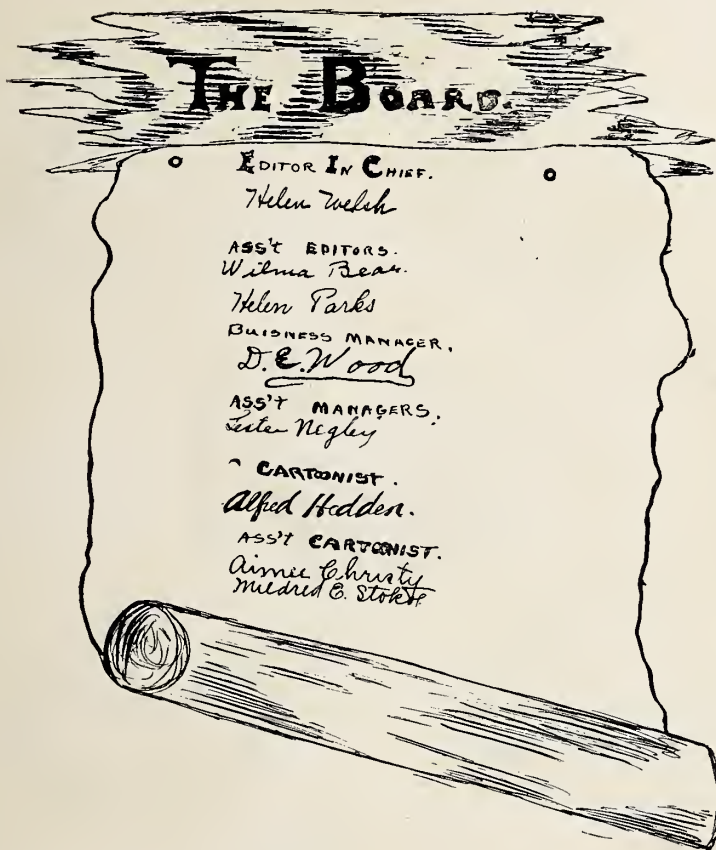 THE BOARD.
EDITOR IN CHIEF.
Helen Welsh
ASS't EDITORS.
Wilma Bear.
Helen Parks
BUISNESS MANAGER.
D.E. Wood
ASS't MANAGERS.
Lester Negley
CARTOONIST.
Alfred Hedden.
ASS't CARTOONIST.
Aimee Christy
Mildred E. Stokes